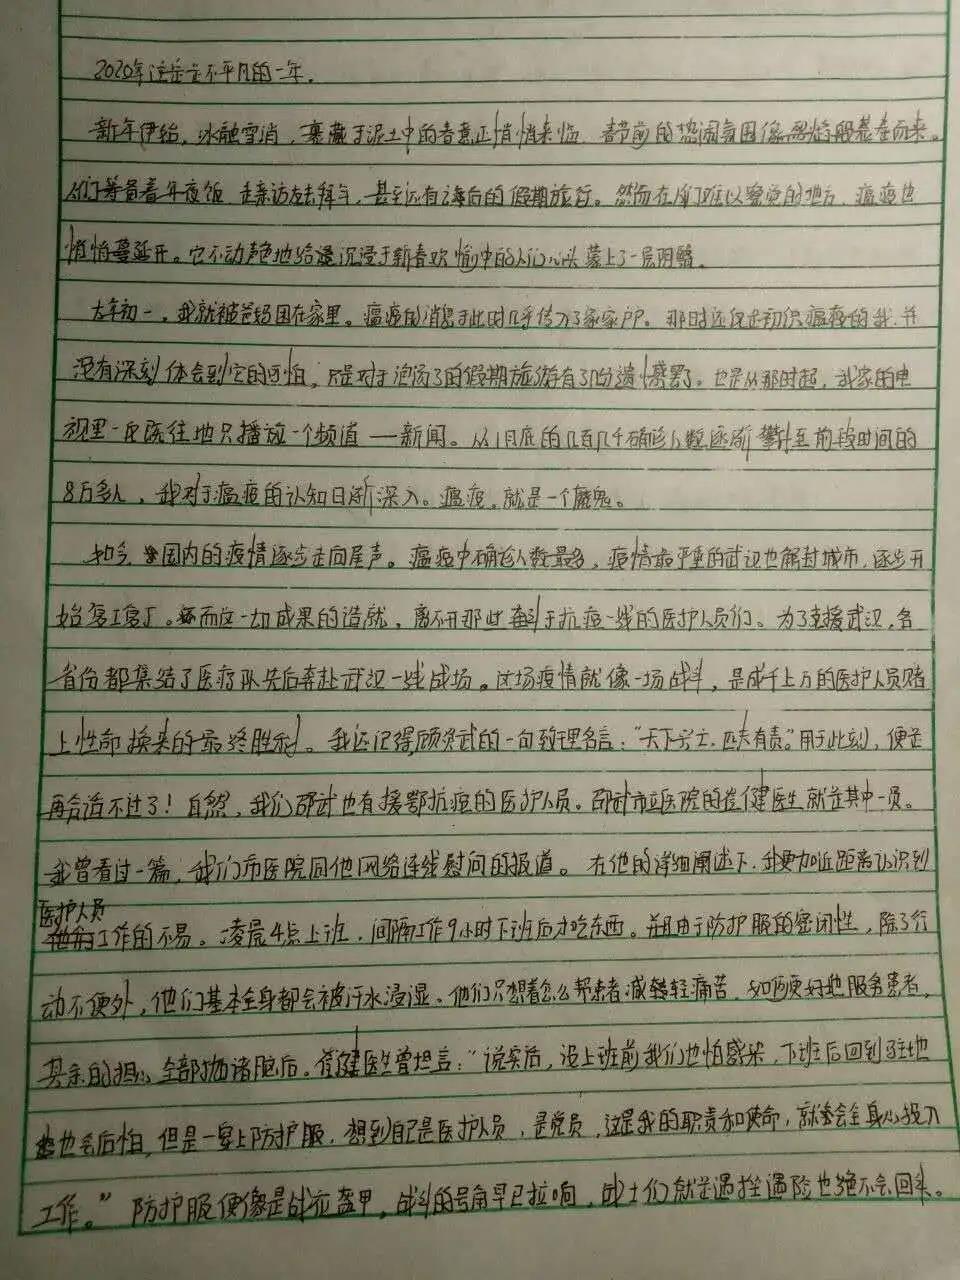 2020年注定是不平凡的一年。
新年伊始，冰融雪消，裹藏于泥土中的春意正悄悄来临，春节前的热闹氛围像热焰般卷卷而来。
人们筹备着年夜饭，走亲访友去拜年，甚至还有之海后的假期旅行。然而在人们难以察觉的地方，瘟疫也
悄悄蔓延开。它不动声色地给沉浸于新春欢愉中的人们心头蒙上了一层阴翳。
大年初一，我就被爸妈困在家里。瘟疫的消息于此时几乎传入了家家户户。那时还仅是初识瘟疫的我，并
没有深刻体会到它的可怕，只是对于泡汤了的假期旅游有了份遗憾罢了。也是从那时起，我家的电
视里一反既往地只播放一个频道——新闻。从1月底的几百几千确诊人数逐渐攀升至前段时间的
8万多人，我对于瘟疫的认知日渐深入。瘟疫，就是一个魔鬼。
如今，国内的疫情逐步走向尾声。瘟疫中确诊人数最多，疫情最严重的武汉也解封城市，逐步开
始复工复厂。而这一切成果的造就，离不开那些奋斗于抗疫一线的医护人员们。为了支援武汉，各
省份都集结了医疗队先后奔赴武汉一线战场。这场疫情就像一场战斗，是成千上万的医护人员赌
上性命换来的最终胜利。我还记得顾炎武的一句致理名言：“天下兴亡，匹夫有责。”用于此刻，便是
再合适不过了！自然，我们邵武也有援鄂抗疫的医护人员。邵武市立医院的崔健医生就是其中一员。
我曾看过一篇，我们市医院同他网络连线慰问的报道。在他的详细阐述下，我更加近距离认识到
医护人员
工作的不易。凌晨4点上班，间隔工作9小时下班后才吃东西。并且由于防护服的密闭性，除了行
动不便外，他们基本全身都会被汗水浸湿。他们只想着怎么帮患者减轻痛苦，如何更好地服务患者，
其余的担心全部抛诸脑后。崔健医生曾坦言：“说实话，没上班前我们也怕感染，下班后回到驻地
也会后怕，但是一穿上防护服，想到自己是医护人员，是党员，这是我的职责和使命，就会全身心投入
工作。”防护服便像是战衣盔甲，战斗的号角早已拉响，战士们就是遇挫遇险也绝不会回头。